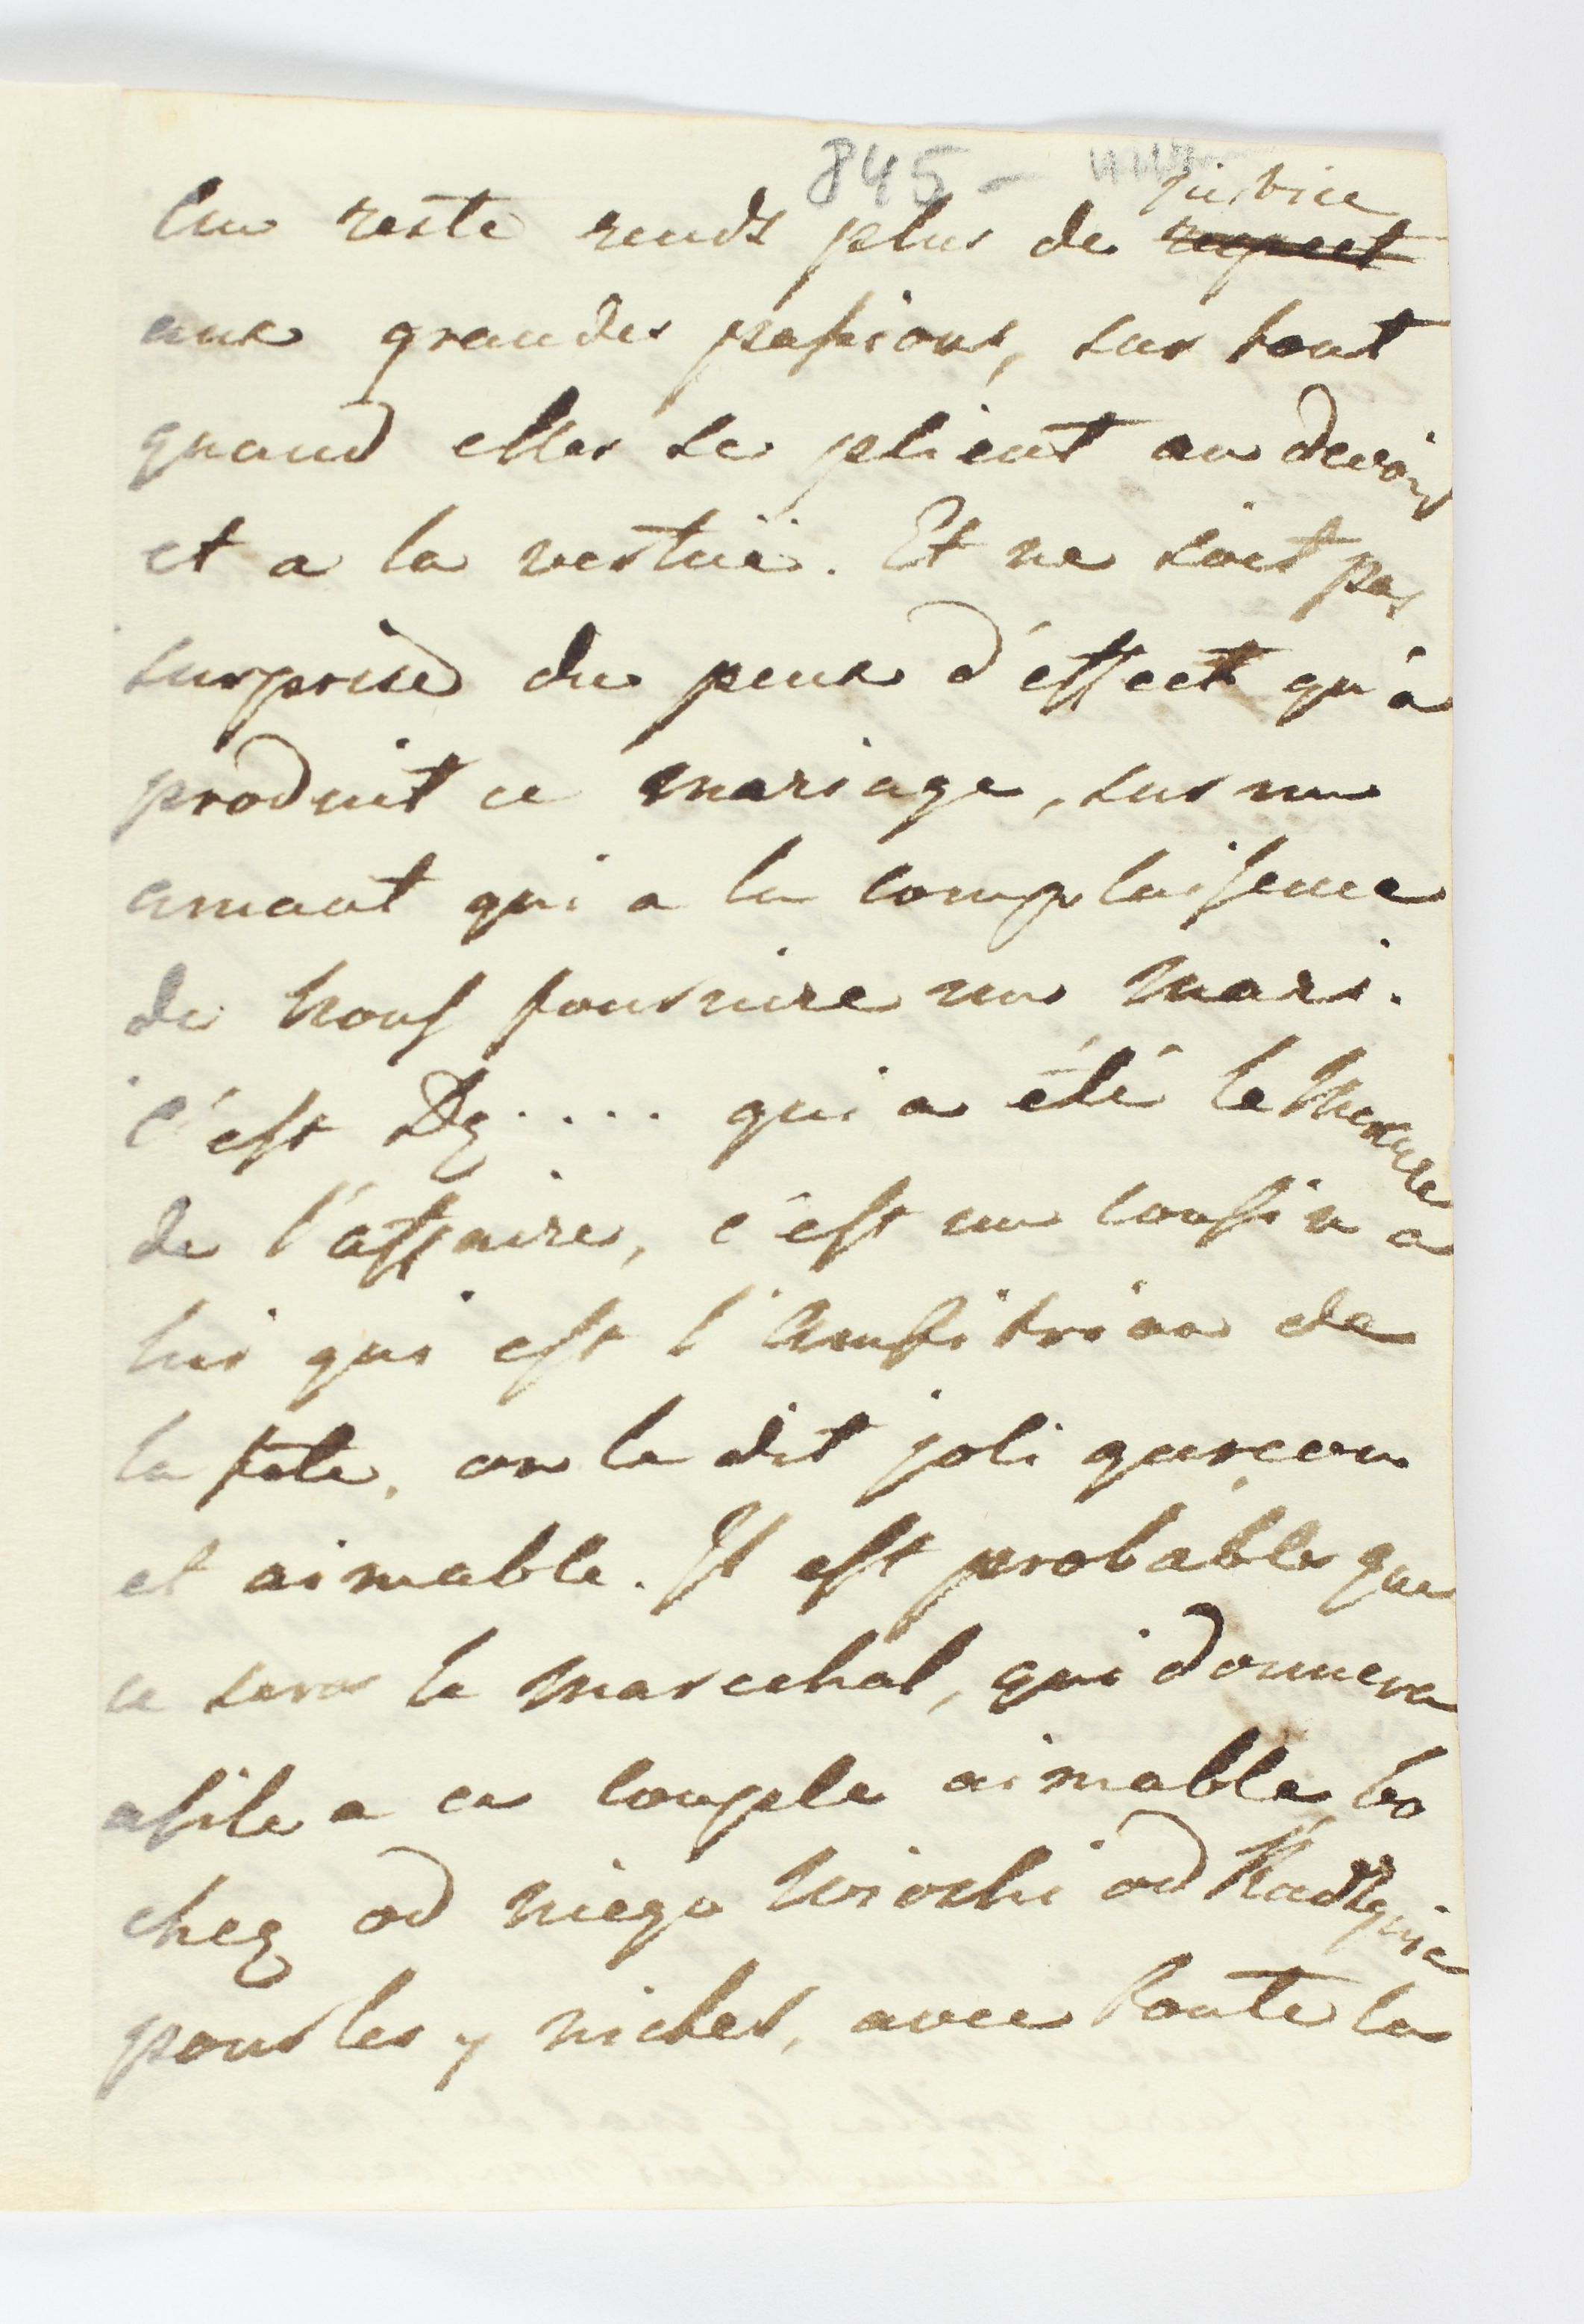 845 –
justice
Au reste rends plus de respect
aux grandes passions, sur tout
quand elles se plient au devoir
et a la vertuë. Et ne sois pas
surprise du peux d'éffect qu'a
produit ce mariage, sur un
amant qui a la complaisence
de nous fournire un mari.
C'est Dz.... qui a été le Mercure
de l'affaire, c'est un cousin a
lui qui est l'Amfitrion de
la fete, on le dit joli garçon
et aimable. Il est probable que
ce sera le marechal, qui donnera
asile a ce couple aimable, bo
chez od niego Wioski od
pour les y nicher, avec toute la